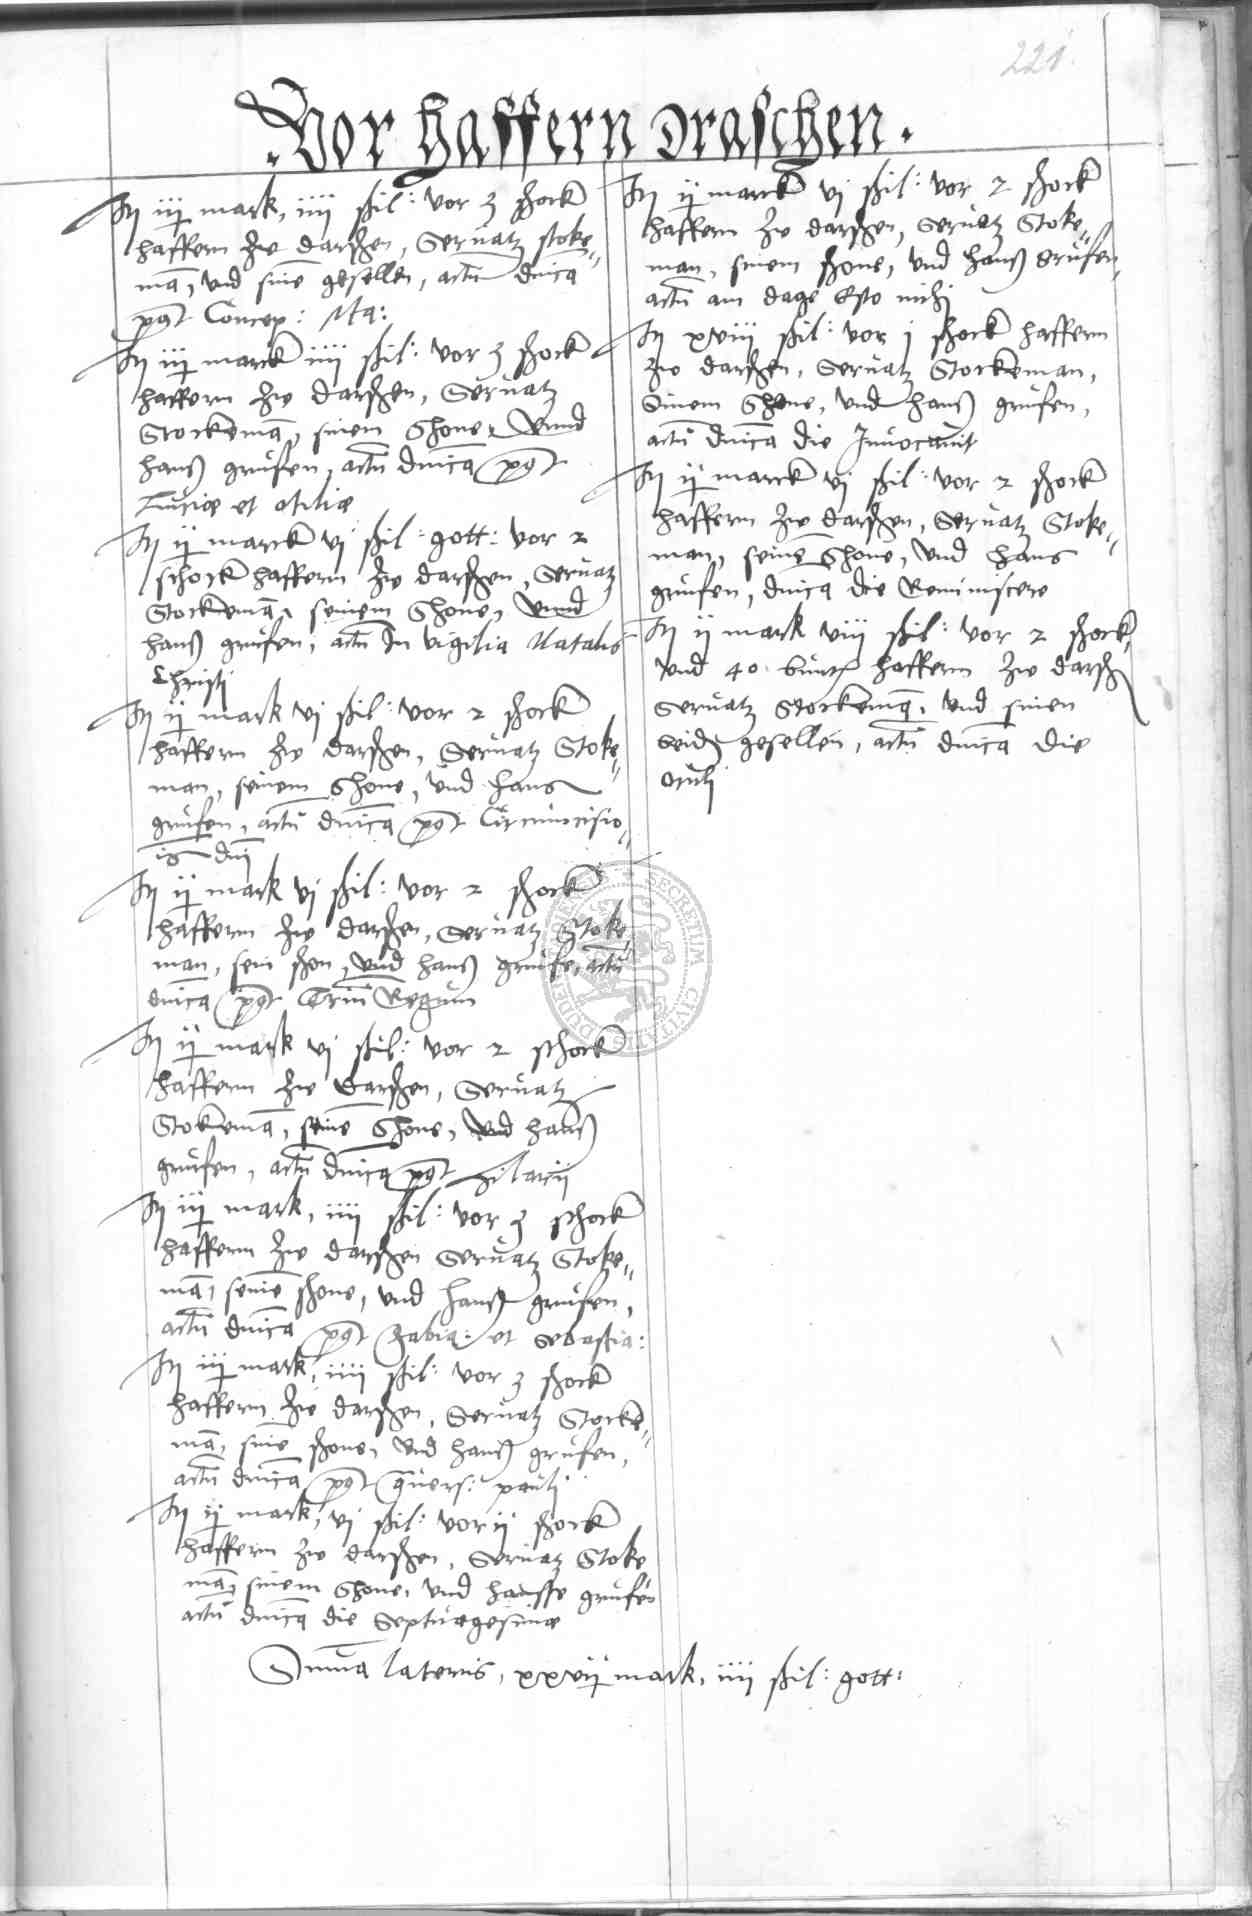 221
Vor haffern draschen.
It iij mark, iiij ßil: vor 3 schock
haffern zw darschen, Seruatz stoke„
mā, vnd sine gesellen, actū dnīca
post Concep: Ma:
It iij marck iiij ßil: vor 3 schock
haffern zw darschen, Seruatz
Stockemā, sinem Shone, vnnd
hanß grusen, actū dnīca post
Luciæ et otiliæ
It ij marck vj ßil: gott: vor 2
schock haffern zw darschen, Seruatz
Stockemā, seinem Shone, vnnd
hanß grusen, actū In vigilia Natalis
Christi
It ij mark vj ßil: vor 2 schock
haffern zw darschen, Seruatz Stoke„
man, seinem Shone, vnd hans
grusen, actū dnīca post Circumcisio„
is dnī
It ij mark vj ßil: vor 2 schock
haffern zw darschen, Seruatz Stoke„
man, sein shon, vnd hanß gruse, actū
dnīca post Triū Regum
It ij mark vj ßil: vor 2 schock
haffern zw darschen, Seruatz
Stokemā, seinē Shone, vnd hanß
grusen, actū dnīca post Hilarij
It iij mark, iiij ßil: vor 3 schock
haffern zw darschen Seruatz Stoke„
mā, seinē shone, vnd hanß grusen,
actū dnīca post Fabia: et Sebastia:
It iij mark, iiij ßil: vor 3 schock
haffern zw darschen, Seruatz Stocke„
mā, sinē shone, vnd hanß grusen,
actū dnīca post Cōuers: pauli
It ij mark, vj ßil: vor ij schock
haffern zw darschen, Seruatz Stoke
mā, sinem Shone, vnd hansse grusen
actū dnīca die Septuagesimæ
It ij marck vj ßil: vor 2 schock
haffern zw darschen, Seruatz Stoke„
man, sinem shone, vnd hanß Grusen,
actū am dage Esto michi
It xviij ßil: vor j schock haffern
zw darschen, Seruatz Stockeman,
Sinem Shone, vnd hanß grusen,
actū dnīca die Inuocauit
It ij marck vj ßil: vor 2 schock
haffern zw darschen, Seruatz Stoke„
man, seinē Shone, vnd hans
grusen, dnīca die Reminiscere
It ij mark viij ßil: vor 2 schock,
vnd 40 bunt haffern zw darsch
Seruatz Stockemā, vnd sinen
beid gesellen, actū dnīca die
oculi
Suma lateris, xxvij mark, iiij ßil: gott:
SECRETUM CIVITATIS